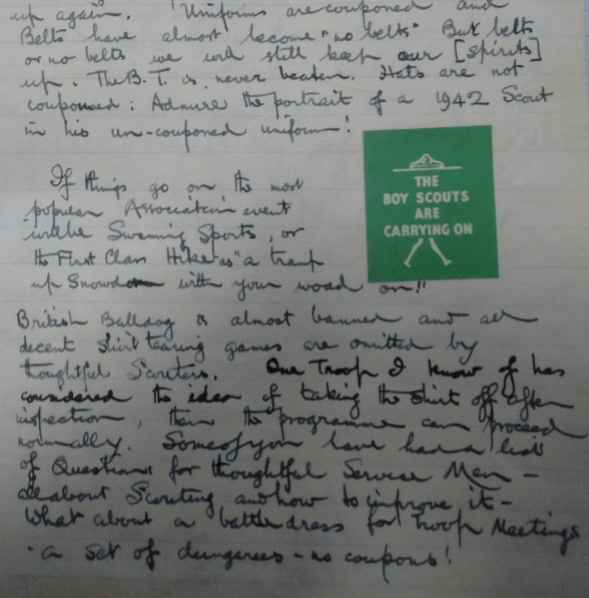 up again. Uniforms are couponed and
Belts have almost become "no belts" But belts
or no belts we will still keep our [spirits]
up. The B.T. is never beaten. Hats are not
couponed: Admire the portrait of a 1942 Scout
in his un-couponed uniform!
THE
BOY SCOUTS
ARE
CARRYING ON
If things go on the most
popular Association event
will be Swimming Sports, or
the First Class Hike as "a tramp
up Snowdon with your woad on!"
British Bulldog is almost banned and all
decent shirt tearing games are omitted by
thoughtful Scouters. One Troop I know of has
considered the idea of taking the shirt off after
inspection, then the programme can proceed
normally. Some of you have had a list
of Questions for thoughtful Service Men -
all about Scouting and how to improve it -
What about a battle dress for Troop Meetings
- a set of dungarees - no coupons!